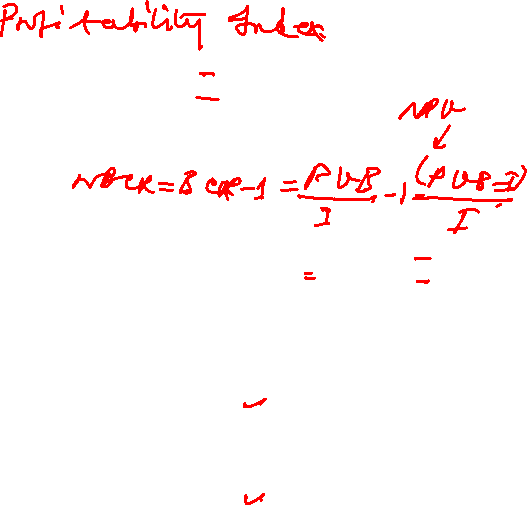 Profitability Index
=
NPV
↓
NBCR = BCR - 1 = PVB/I - 1 = (PVB - I)/I
= =
✓
✓